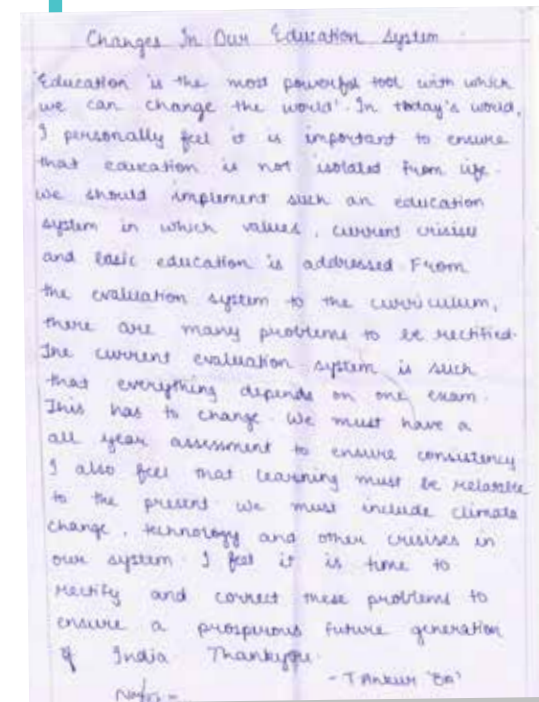 Changes In Our Education System
'Education is the most powerful tool with which
we can change the world'. In today's world,
I personally feel it is important to ensure
that education is not isolated from life.
We should implement such an education
system in which values, current crisises
and basic education is addressed. From
the evaluation system to the curriculum,
there are many problems to be rectified.
The current evaluation system is such
that everything depends on one exam.
This has to change. We must have a
all year assessment to ensure consistency
I also feel that learning must be relatable
to the present. We must include climate
change, technology and other crisises in
our system. I feel it is time to
rectify and correct these problems to
ensure a prosperous future generation
of India. Thankyou.
- T Ankur